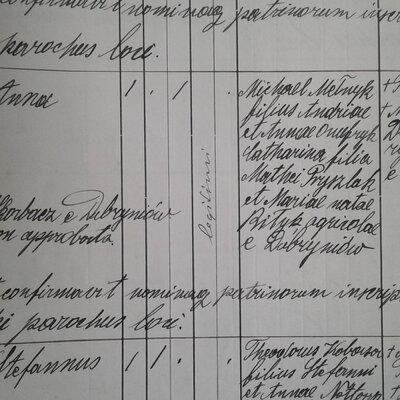 confirmavit nominaq patrinorum inscr
parochus loci.
Anna 1 . 1 .
Michael Melnyk
filius Andriae
et Annae Onufryk
Catharina filia
Mathei Pryszlak
et Mariae natae
Bityk agricolae
e Dubryniów
legitimi
Horbacz e Dubryniów
on approbata.
confirmavit nominaq patrinorum inscrip
parochus loci:
Stefannus 1 1 . .
Theodorus Kobasa
filius Stefanni
et Annae